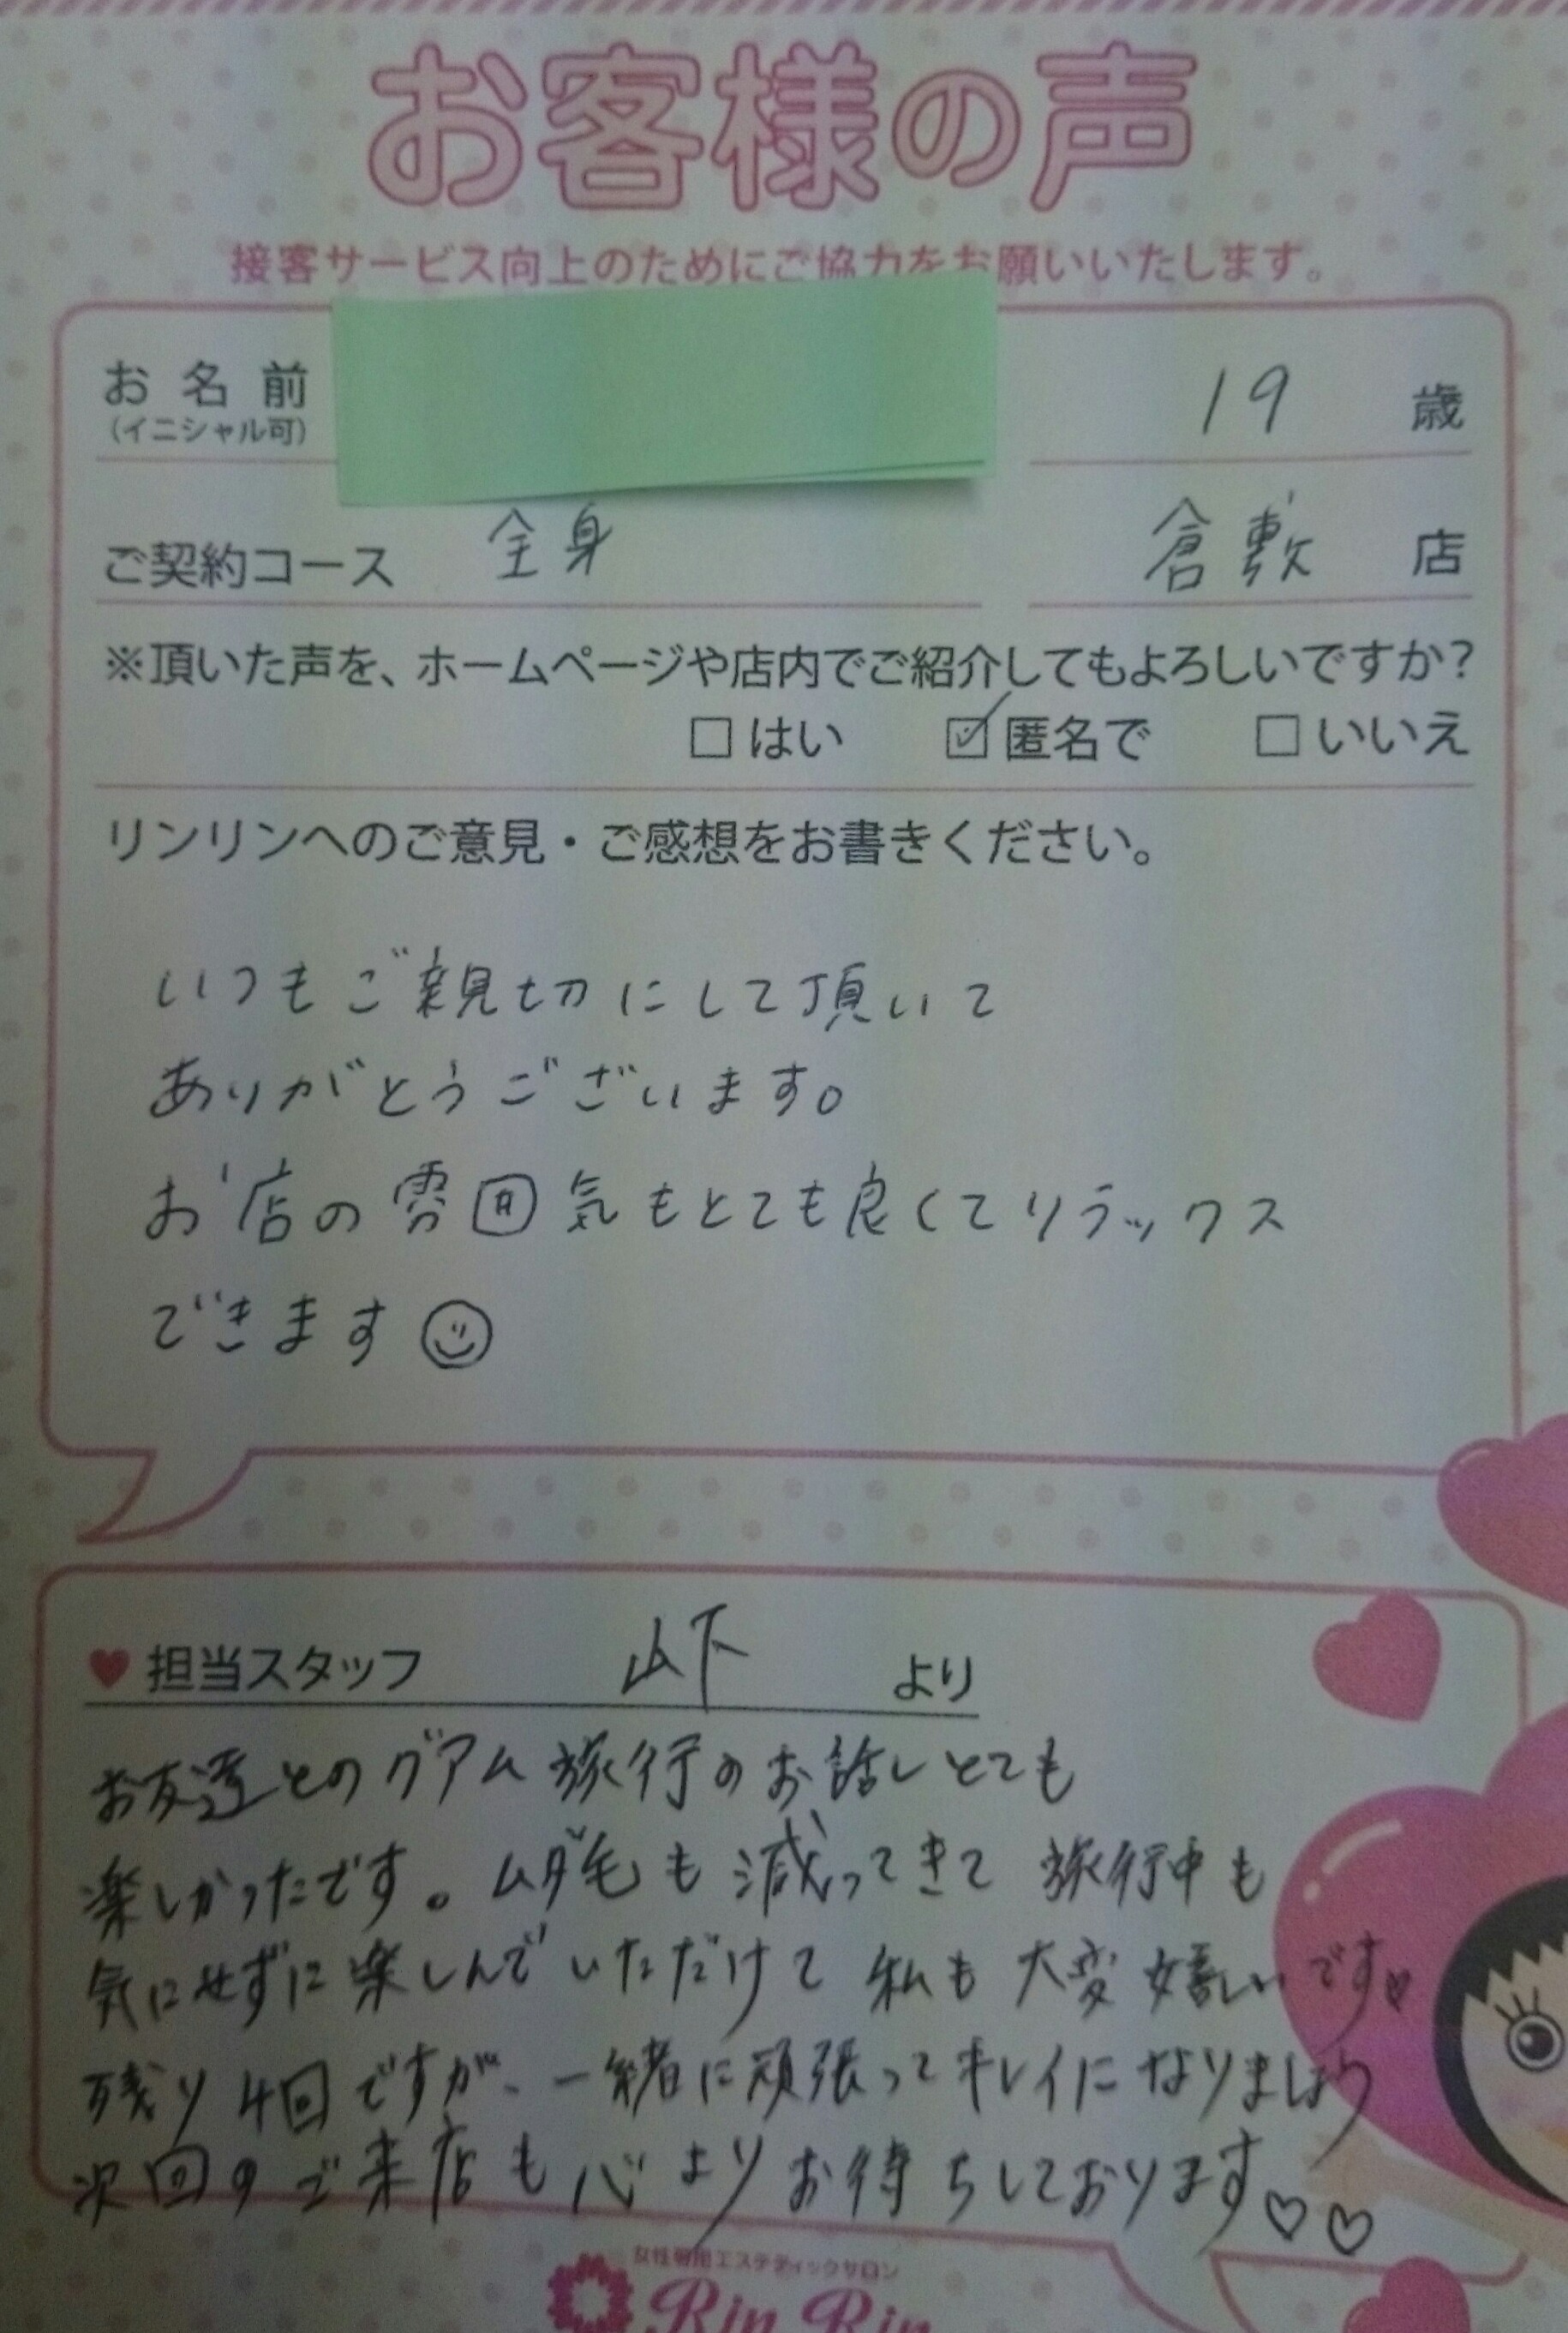 お客様の声
接客サービス向上のためにご協力をお願いいたします。
お名前 19 歳
(イニシャル可)
ご契約コース 全身 倉敷 店
※頂いた声を、ホームページや店内でご紹介してもよろしいですか?
□はい ☑匿名で □いいえ
リンリンへのご意見・ご感想をお書きください。
いつもご親切にして頂いて
ありがとうございます。
お店の雰囲気もとても良くてリラックス
できます☺
♥担当スタッフ 山下 より
お友達とのグアム旅行のお話しとても
楽しかったです。ムダ毛も減ってきて旅行中も
気にせずに楽しんでいただけて私も大変嬉しいです♡
残り4回ですが、一緒に頑張ってキレイになりましょう
次回のご来店も心よりお待ちしております♡♡
女性専用エステティックサロン
Rin Rin